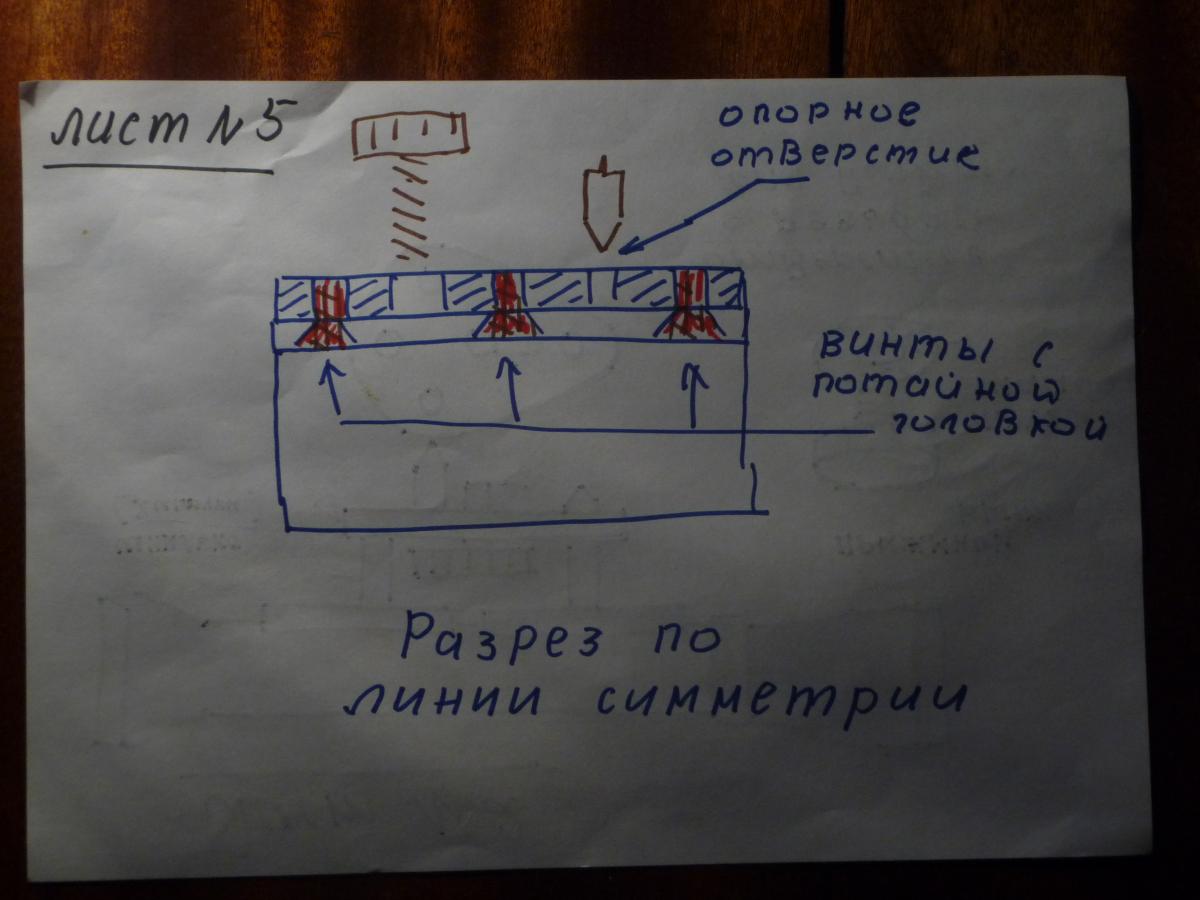 лист N 5
опорное
отверстие
винты с
потайной
головкой
Разрез по
линии симметрии